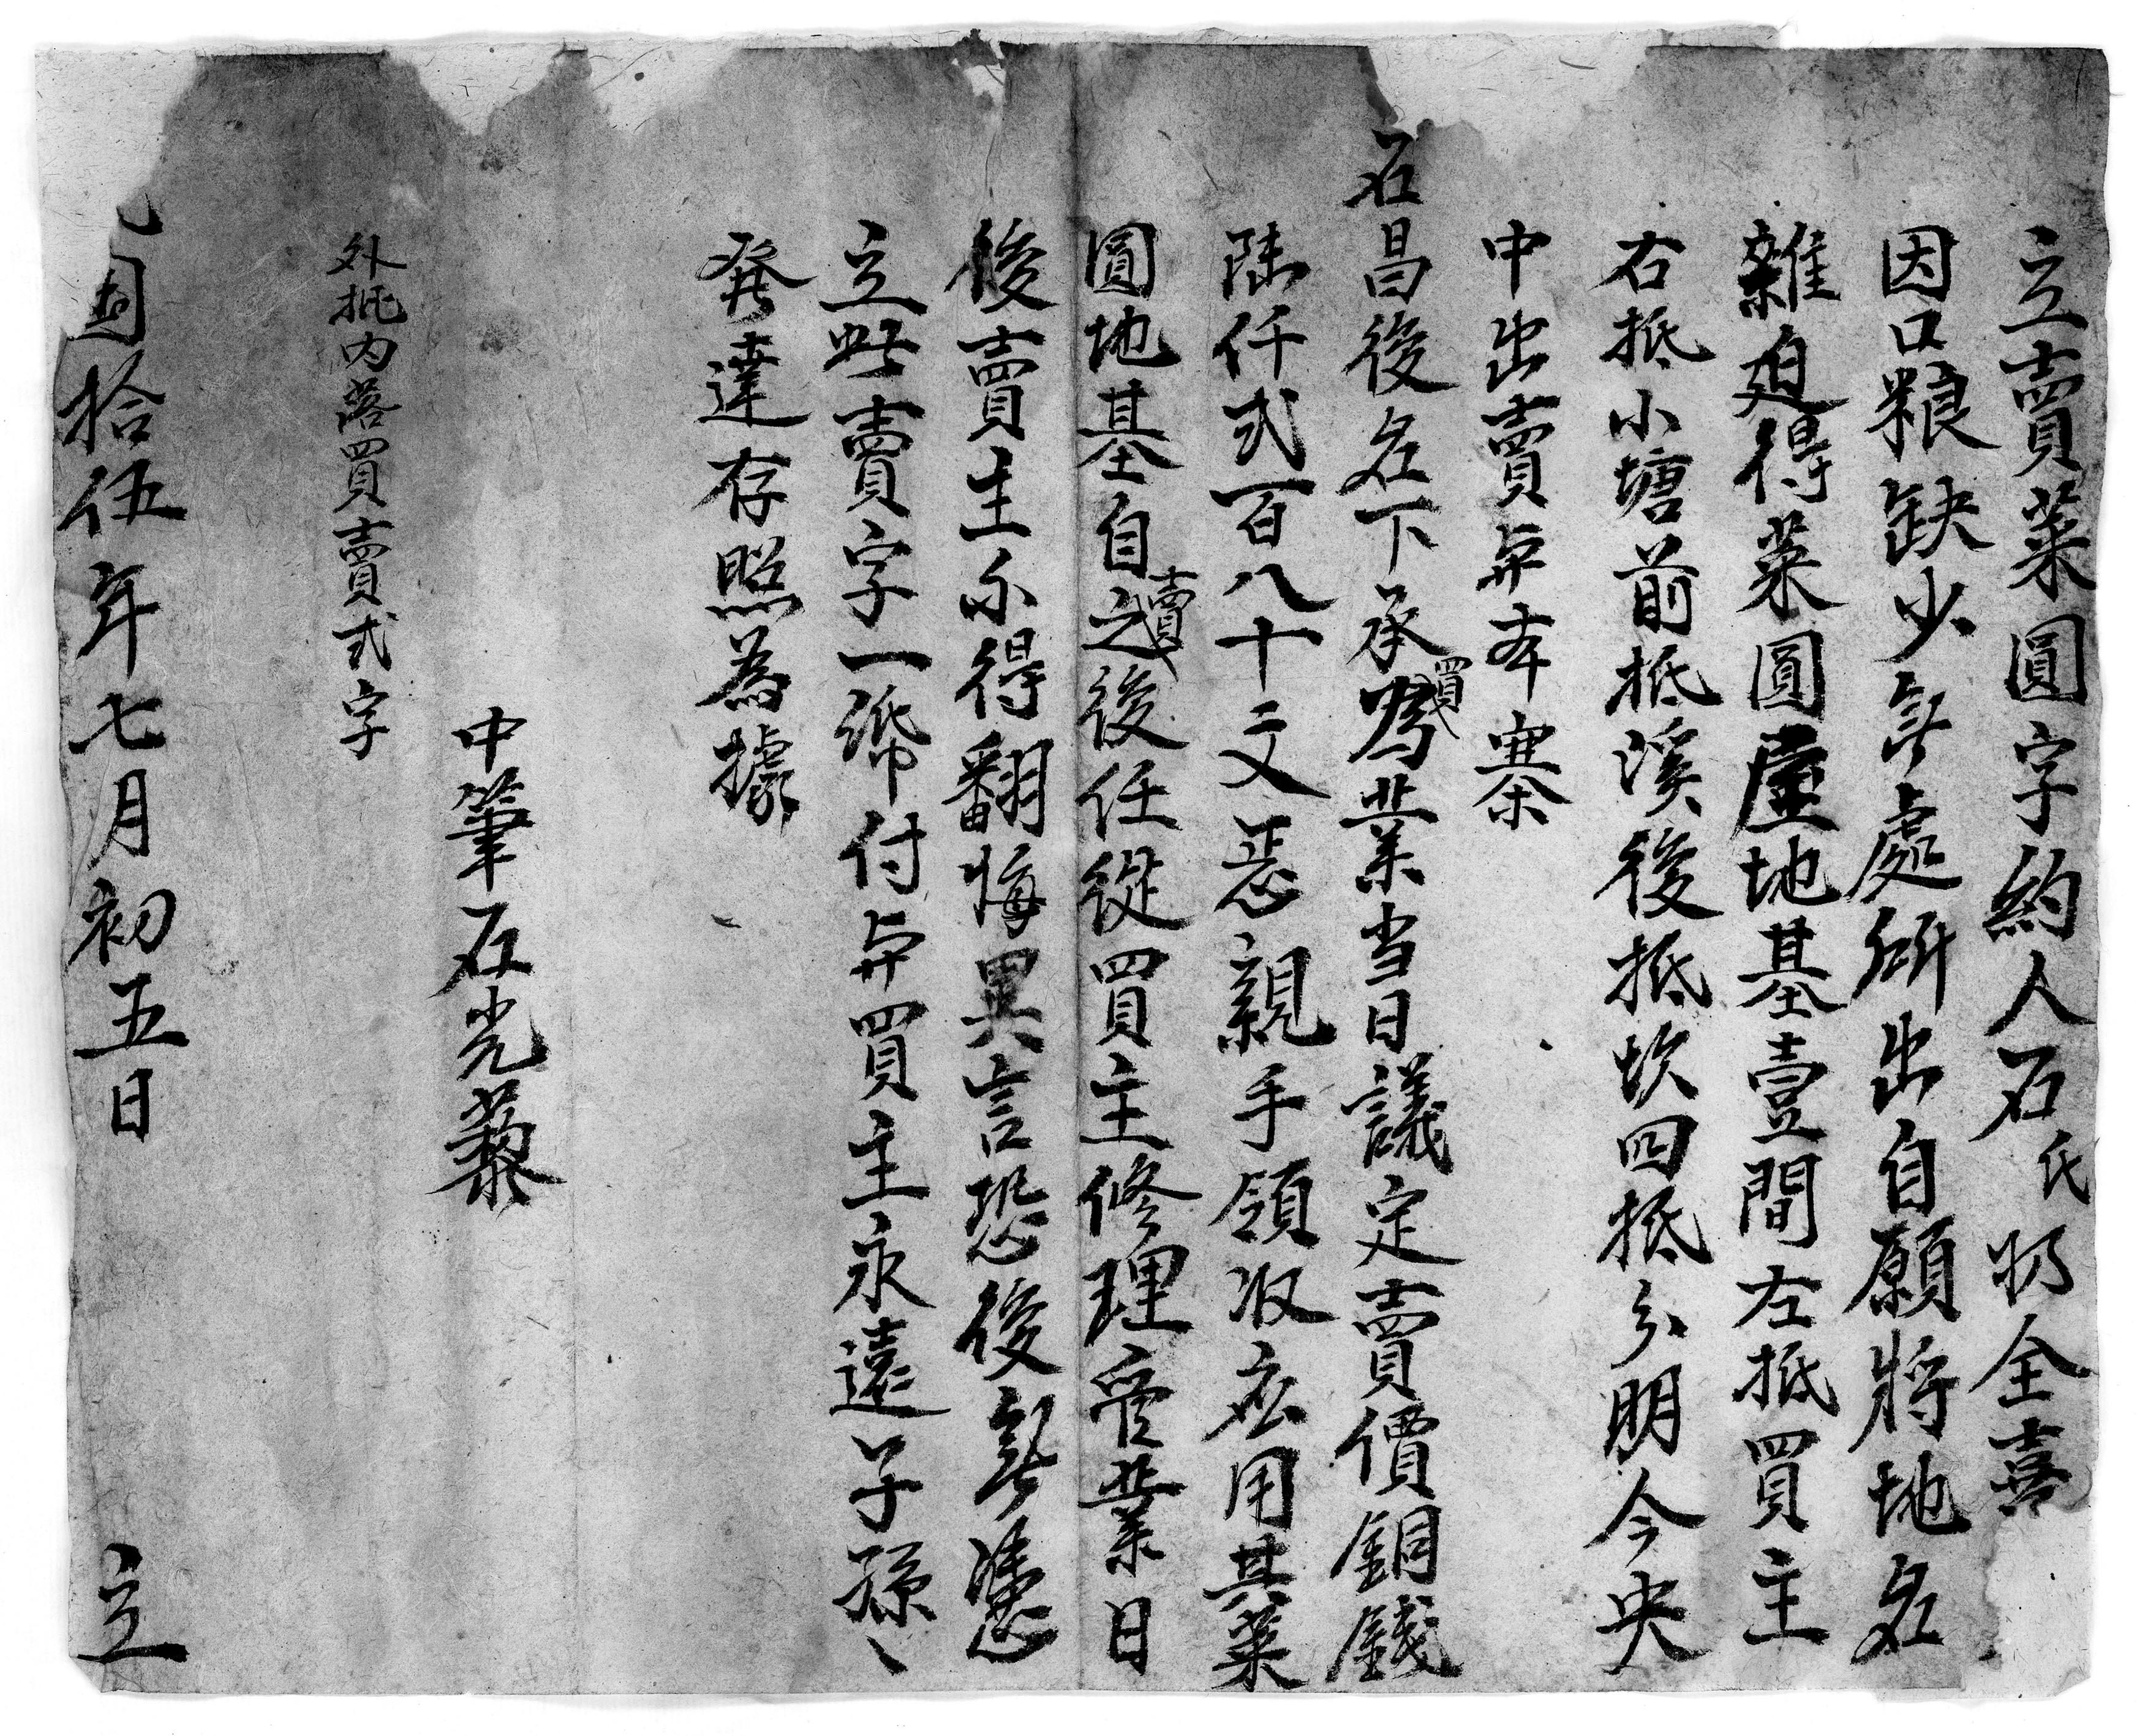 立賣菜圓字約人石氏 全喜
因口粮缺少無處所出自願將地名
雜 得菜圓屋地基壹間左抵買主
右抵小塘前抵溪後抵坎四抵分明今央
中出賣与本寨
石昌後名下承買為業当日議定賣價銅錢
陸仟弍百八十文恁親手領收應用其菜
圓地基自賣之後任從買主修理管業日
後賣主不得翻悔異言恐後無憑
立此賣字一紙付与買主永遠子孫〻
發達存照為據
中筆石光藜
外抵内落買賣弍字
國拾伍年七月初五日 立